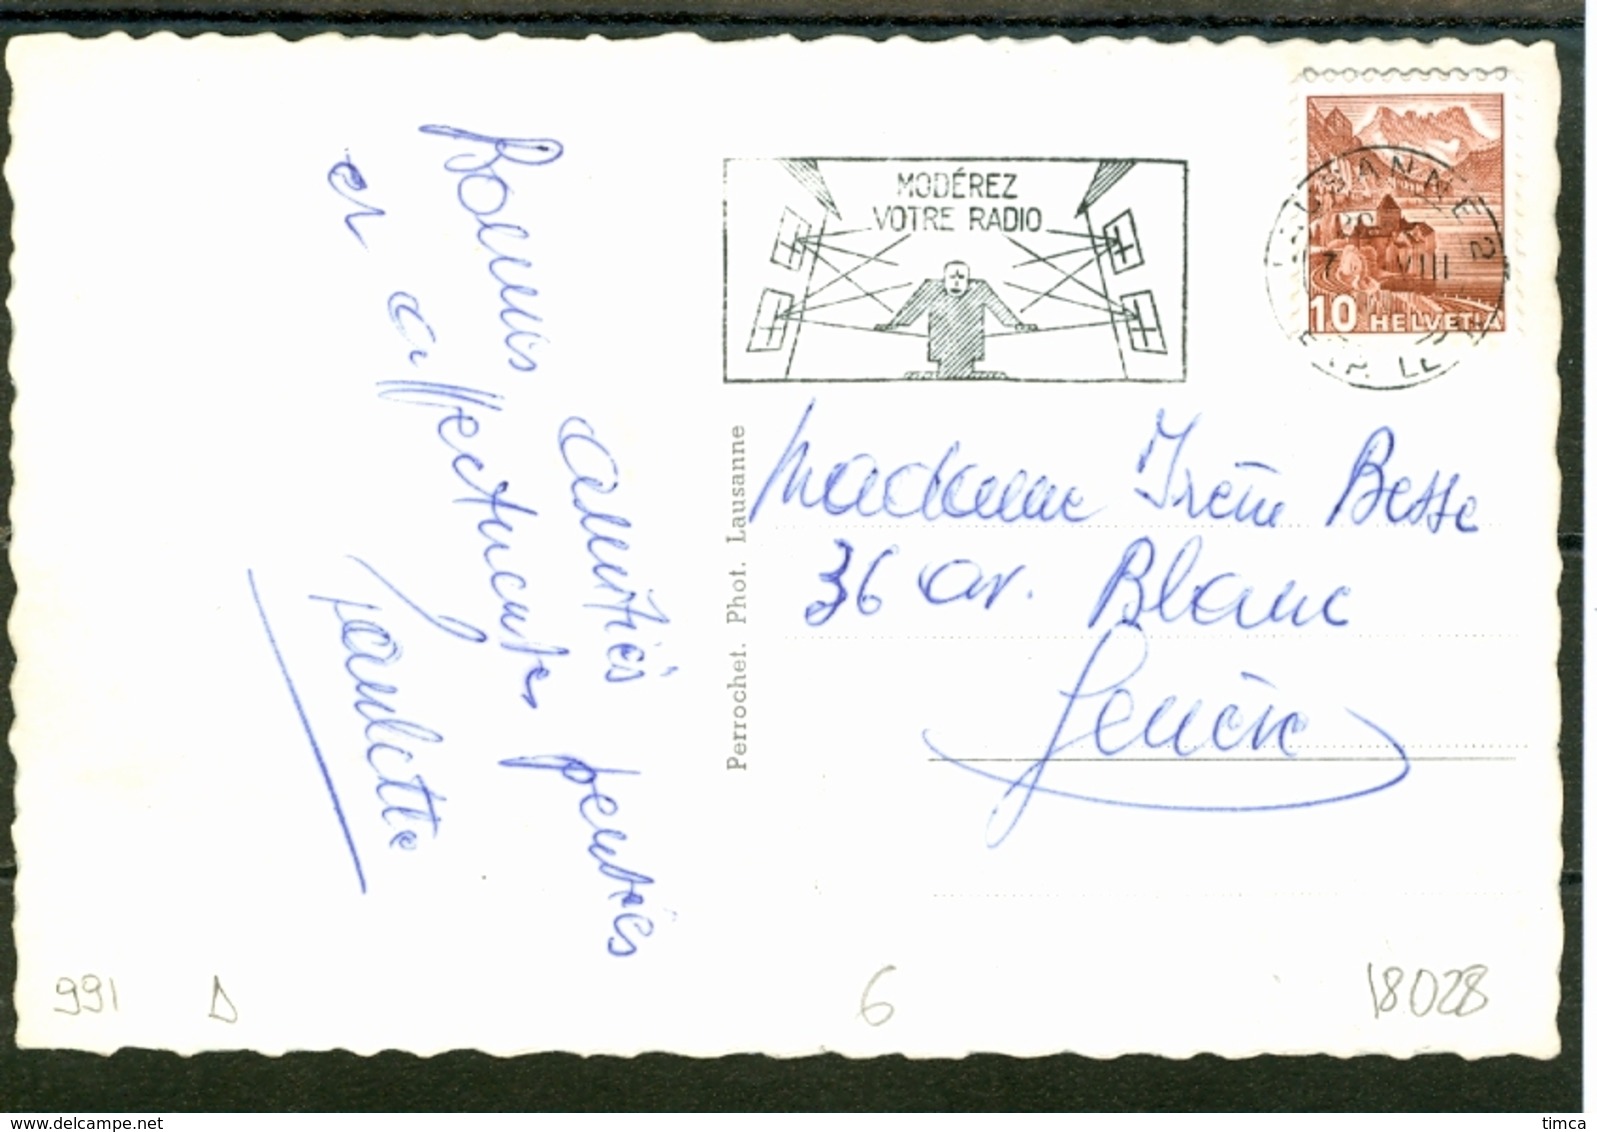 Bonnes amitiés
et affectueuses pensées
Paulette
MODÉREZ
VOTRE RADIO
LAUSANNE 2
VIII
10 HELVETIA
Perrochet. Phot. Lausanne
Madame Irène Besse
36 av. Blanc
Genève
991
6
18028
timca